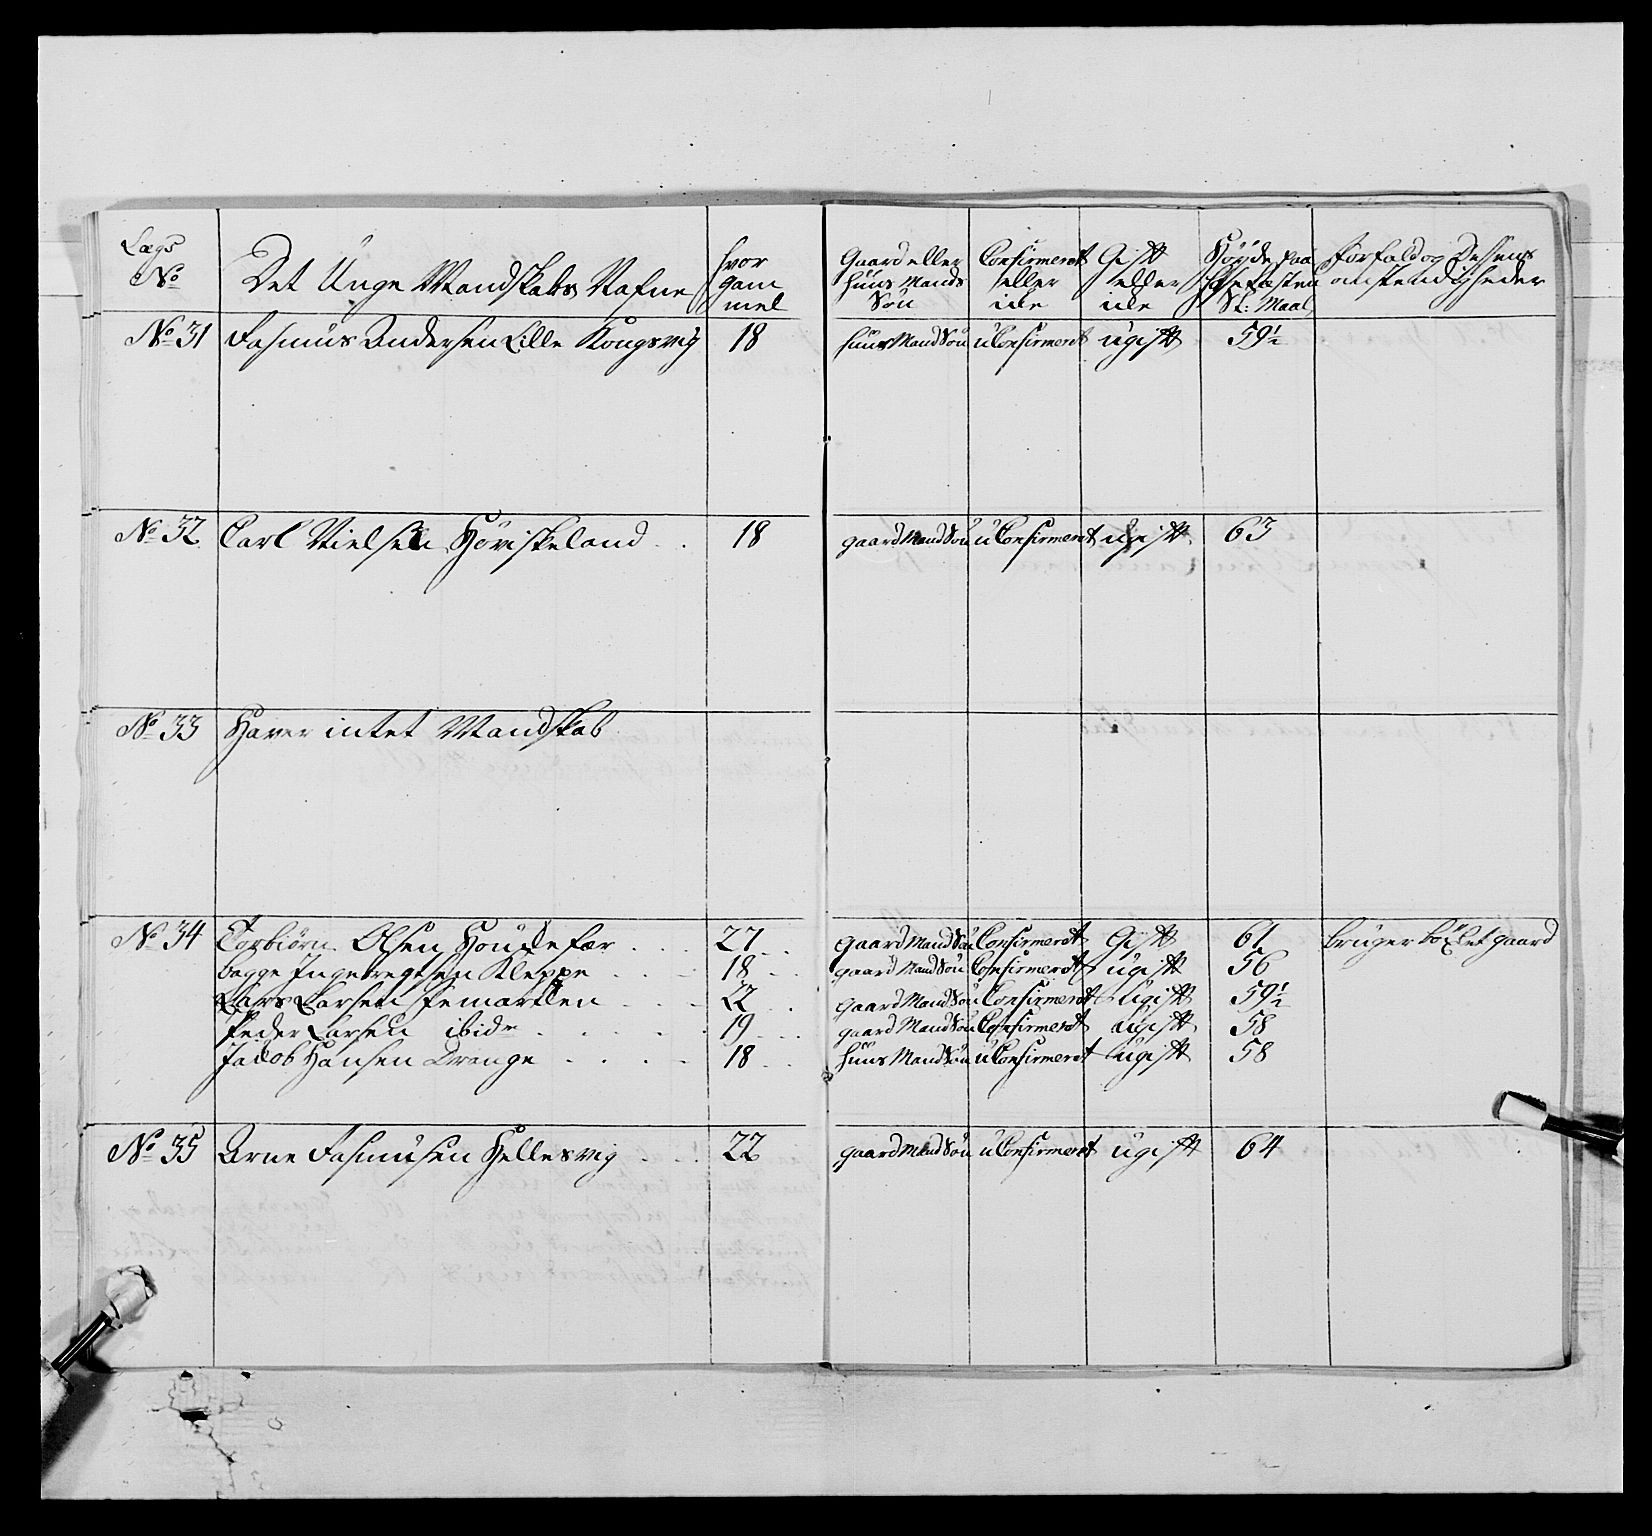 Lægs No | Det Unge Mandskabs Nafne | hvor gam mel | Gaard eller Huus Mands Søn | Confirmeret eller icke | Gift eller icke | Høyde paa Hosesaaten St: Maal | Forfald og Dessens omstendigheder
No 31 | Rasmus Andersen Lille Kongsvig | 18 | Huus Mand Søn | u Confirmeret | ugift | 59½
No 32 | Carl Nielsen Høviskeland | 18 | gaard Mand Søn | u Confirmeret | ugift | 63
No 33 | Haver intet Mandskab
No 34 | Torbiørn Olsen Houdefar | 27 | gaard Mand Søn | Confirmeret | Gift | 61 | bruger böxlet gaard
bagge Ingebregtsen Kleppe | 18 | gaard Mand Søn | Confirmeret | ugift | 56
Lars Larsen | 22 | gaard Mand Søn | Confirmeret | Ugift | 59½
Peder Larsen ibidm | 19 | gaard Mand Søn | Confirmeret | Ugift | 58
Jacob Hansen Drange | 18 | Huus Mand Søn | u Confirmeret | ugift | 58
No 35 | Arne Rasmusen Hellesvig | 22 | gaard Mand Søn | u Confirmeret | ugift | 64